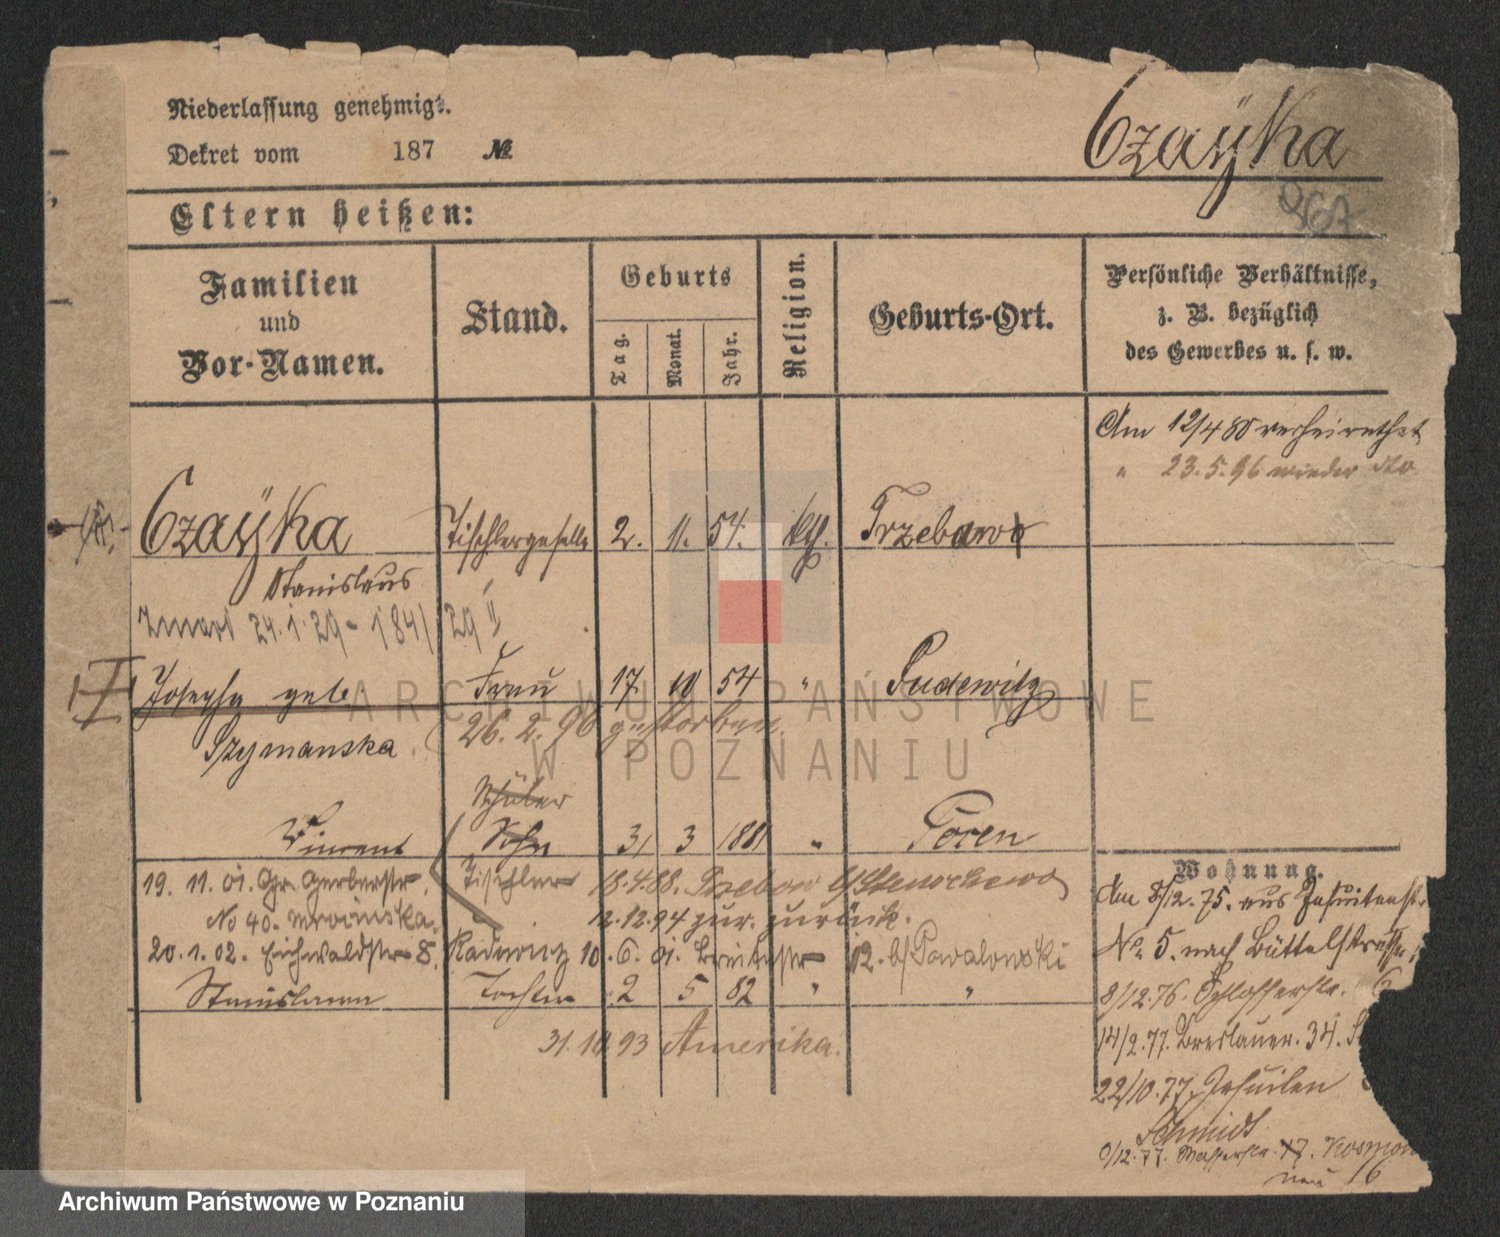 Niederlassung genehmigt.
Dekret vom 187 №
Czaÿka
Eltern heißen:
Familien und Vor-Namen.
Stand.
Geburts
Tag.
Monat.
Jahr.
Religion.
Geburts-Ort.
Persönliche Verhältnisse,
z. B. bezüglich
des Gewerbes u. s. w.
Am 12/4 80 verheirathet
" 23.5.96 wieder
Czaÿka Tischlergeselle 2. 11. 54. kth. Trzebawo
Stanislaus
24.1.29 - 1841/29
Josepha geb. Frau 17. 10 54 " Pudewitz
Szymanska
26.2.96 gestorben.
Schüler
Vincent Sohn 31 3 1881 " Posen
19. 11. 01. Gr. Gerberstr. Tischler 18.4.88.
No 40. 12.12.94 zur. zurück.
20.1.02. Eichwaldstr 8. 10.6.01. 12. b/Powalowski
Stanislawa Tochter 2 5 82 " "
31.10.93 Amerika.
Wohnung.
Am 8/12.75. aus Jesuitenstr.
No. 5. nach Büttelstrasse
8/12.76. Schlosserstr. 6
14/2.77. Breslauer. 34.
22/10.77. Jesuiten
Schmidt
0/12.77. Wasserstr. 17.
neu 16
Archiwum Państwowe w Poznaniu
ARCHIWUM PAŃSTWOWE
W POZNANIU